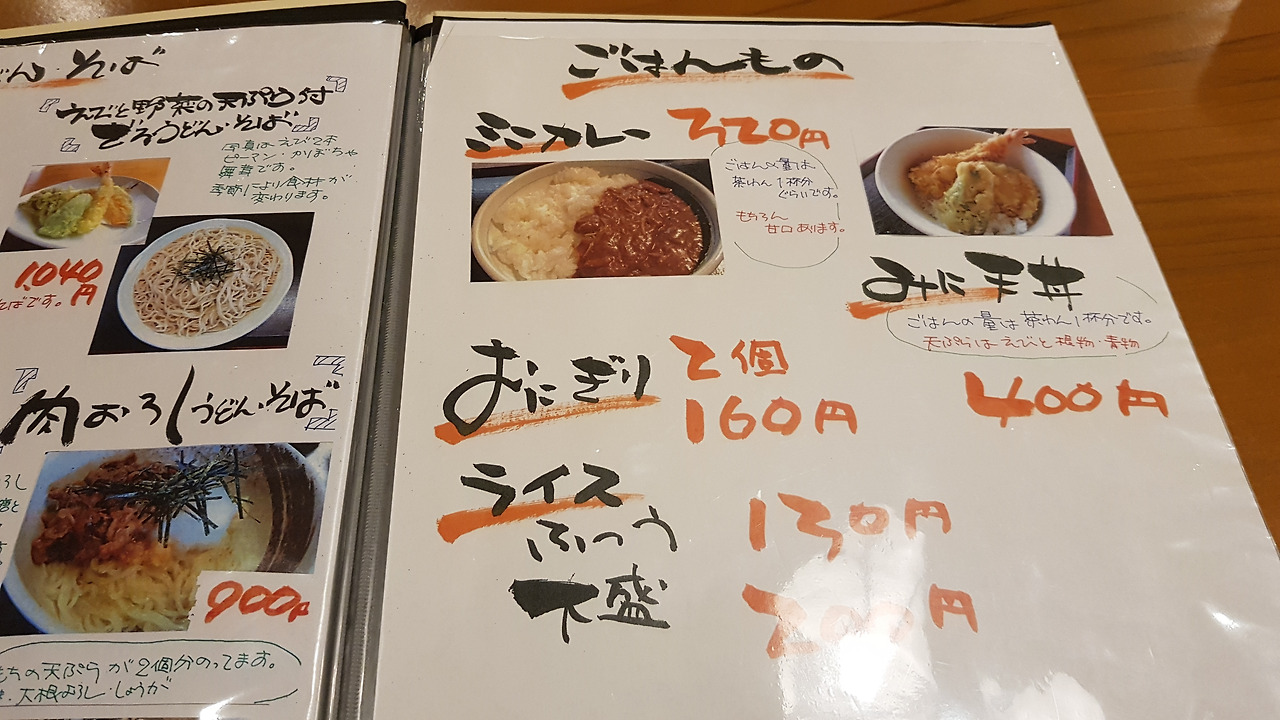 どん・そば
『えびと野菜の天ぷら付
ざるうどん・そば』
写真はえびです
ピーマン・かぼちゃ
舞茸です。
季節により食材が
変わります。
1,040円
そばです。
『肉おろしうどん・そば』
900円
もちの天ぷらが2個分のってます。
大根おろし・しょうが
ごはんもの
ミニカレー 320円
ごはんの量は
茶わん1杯分
ぐらいです。
もちろん
甘口あります。
みに天丼
ごはんの量は茶わん1杯分です。
天ぷらはえびと根物・青物
400円
おにぎり 2個
160円
ライス
ふつう 130円
大盛 200円